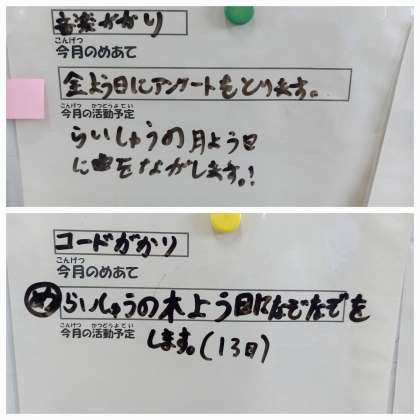 音楽がかり
こんげつ
今月のめあて
金よう日にアンケートをとります。
こんげつ かつどうよてい
今月の活動予定
らいしゅうの月よう日
に をながします。!
コードがかり
こんげつ
今月のめあて
め らいしゅうの木よう日になぞなぞを
こんげつ かつどうよてい
今月の活動予定
します。(13日)